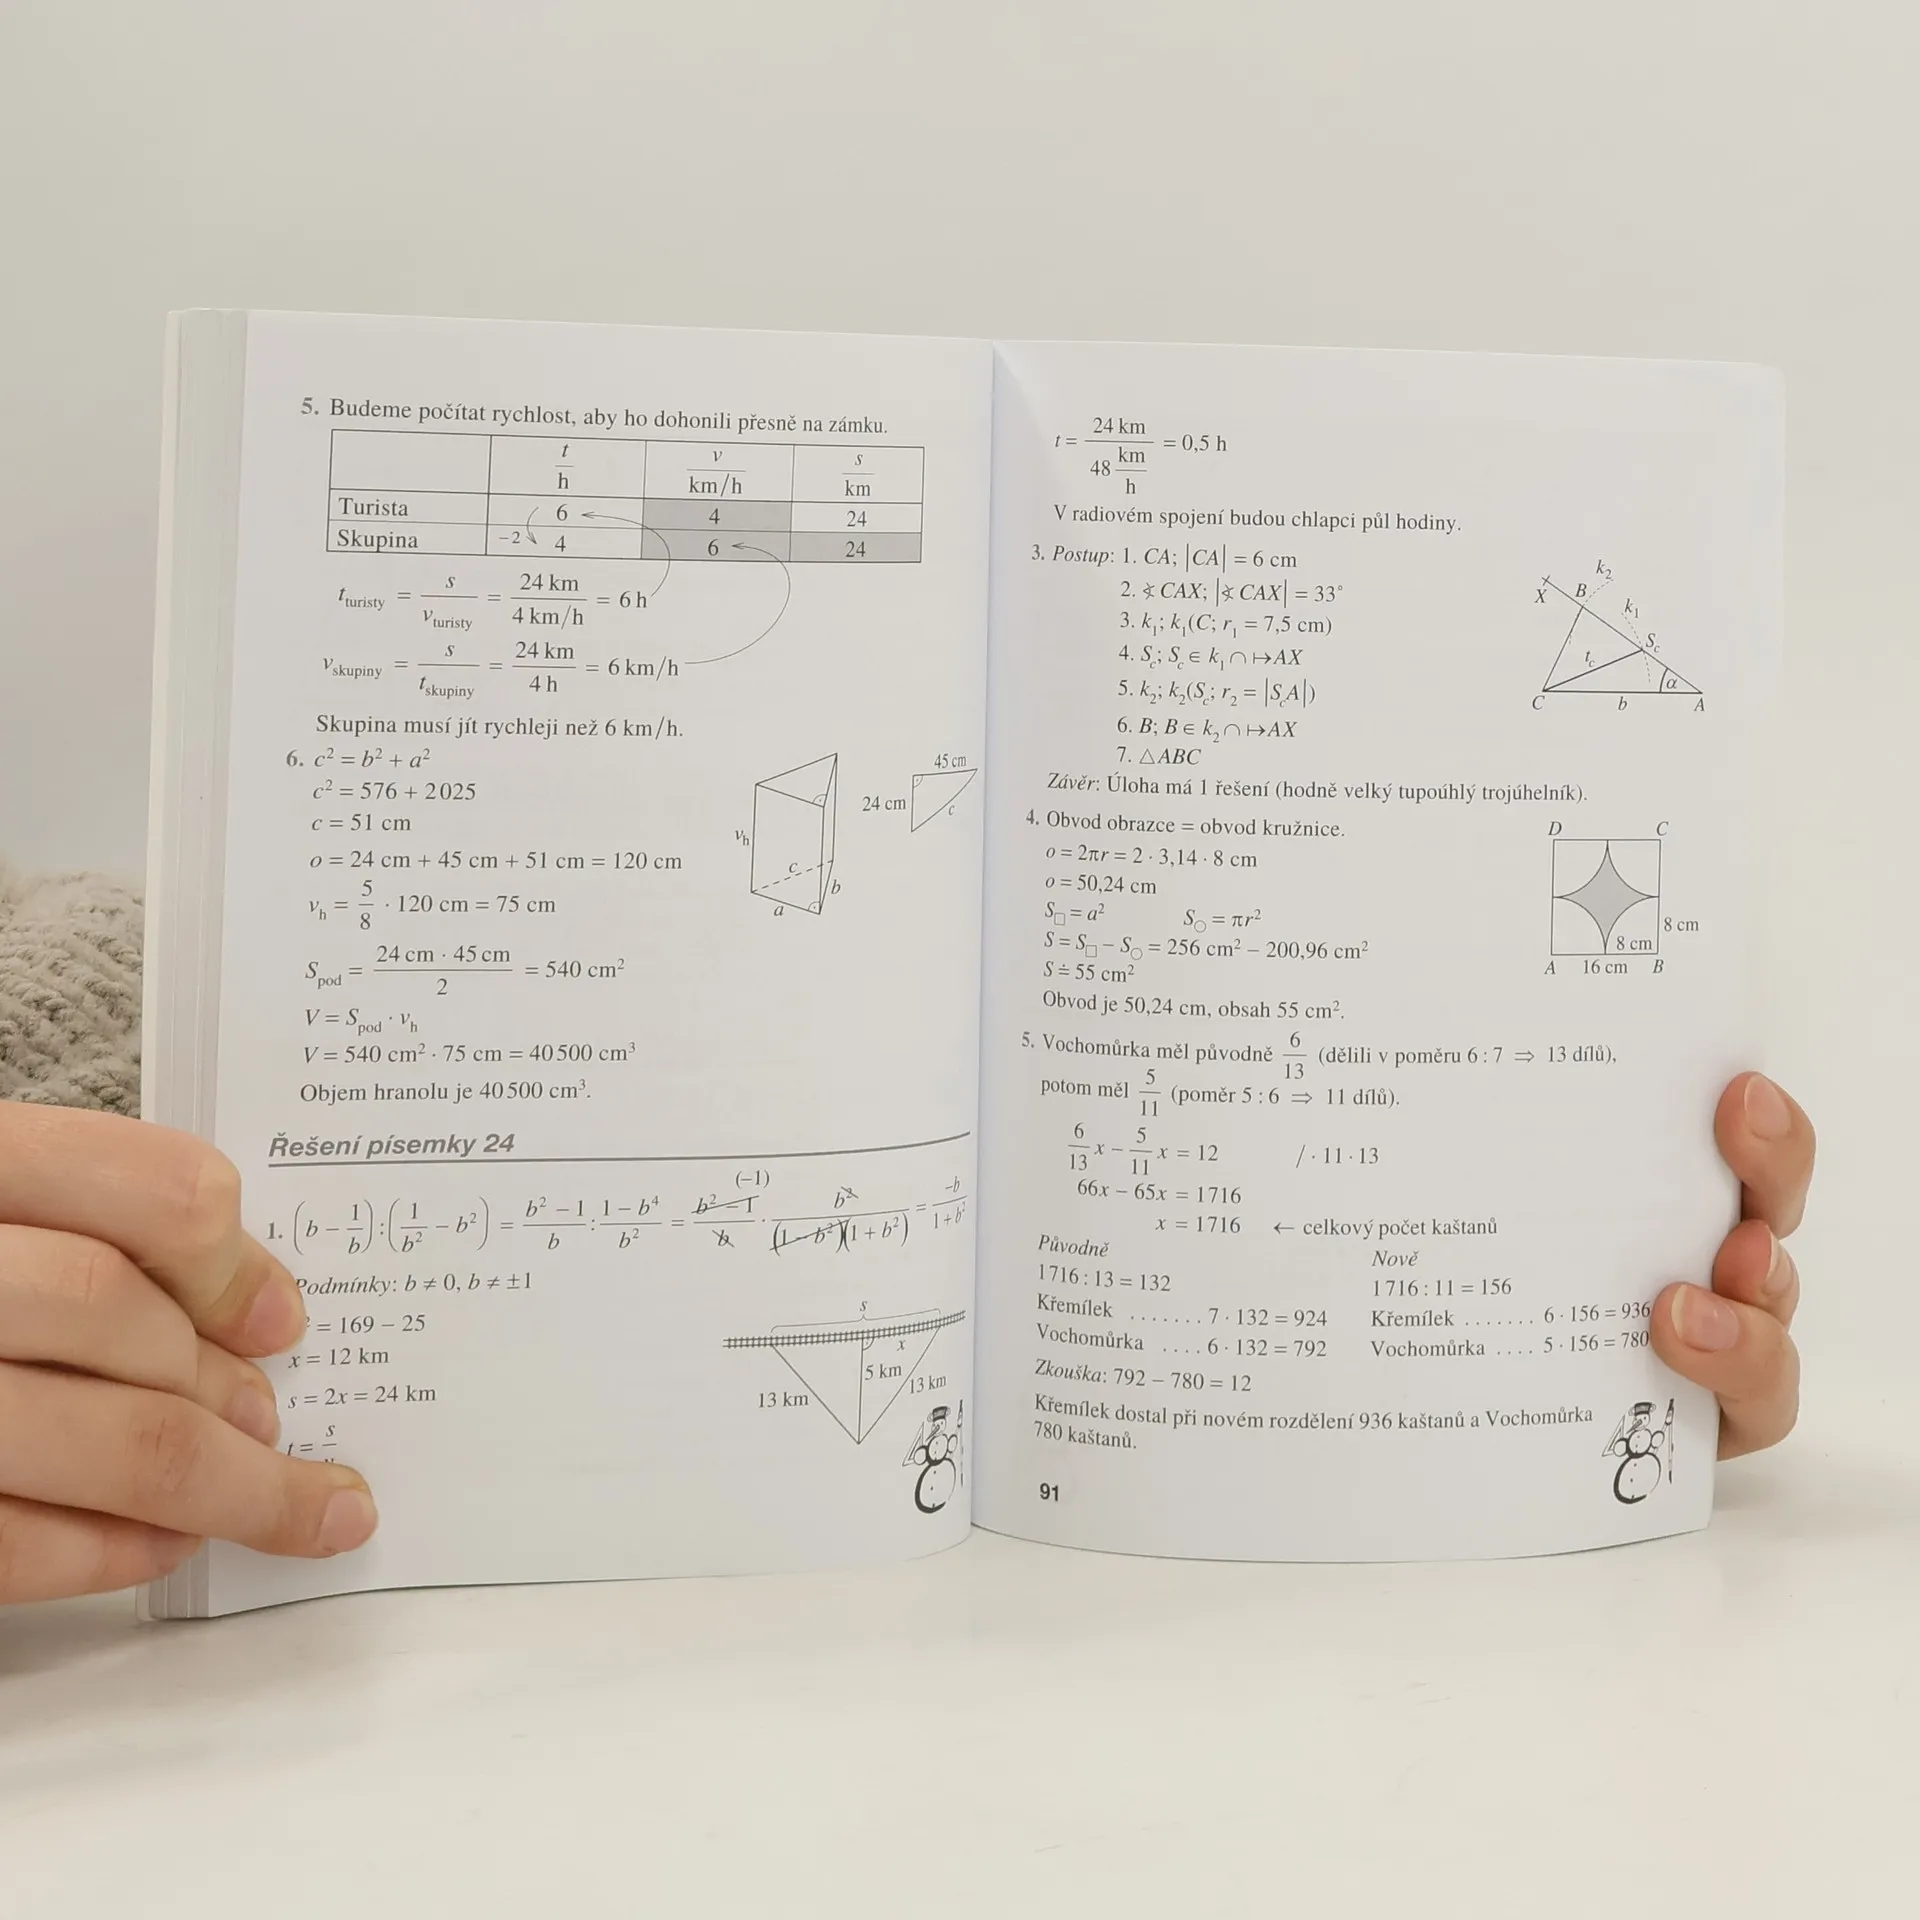 5. Budeme počítat rychlost, aby ho dohonili přesně na zámku.
t/h v/km/h s/km
Turista 6 4 24
Skupina −2 4 6 24
t_turisty = s/v_turisty = 24 km/4 km/h = 6 h
v_skupiny = s/t_skupiny = 24 km/4 h = 6 km/h
Skupina musí jít rychleji než 6 km/h.
6. c² = b² + a²
c² = 576 + 2025
c = 51 cm
o = 24 cm + 45 cm + 51 cm = 120 cm
v_h = 5/8 · 120 cm = 75 cm
S_pod = 24 cm · 45 cm/2 = 540 cm²
V = S_pod · v_h
V = 540 cm² · 75 cm = 40 500 cm³
Objem hranolu je 40 500 cm³.
v_h c b a
45 cm
24 cm c
Řešení písemky 24
(−1)
1. (b − 1/b) : (1/b² − b²) = b² − 1/b : 1 − b⁴/b² = b² − 1/b · b²/(1 − b²)(1 + b²) = −b/1 + b²
Podmínky: b ≠ 0, b ≠ ±1
² = 169 − 25
x = 12 km
s = 2x = 24 km
t = s
s
x
5 km
13 km 13 km
t = 24 km/48 km/h = 0,5 h
V radiovém spojení budou chlapci půl hodiny.
3. Postup: 1. CA; |CA| = 6 cm
2. ∢ CAX; |∢ CAX| = 33°
3. k₁; k₁(C; r₁ = 7,5 cm)
4. S_c; S_c ∈ k₁ ∩ ↦AX
5. k₂; k₂(S_c; r₂ = |S_cA|)
6. B; B ∈ k₂ ∩ ↦AX
7. △ABC
k₂
X B k₁
S_c
t_c
α
C b A
Závěr: Úloha má 1 řešení (hodně velký tupoúhlý trojúhelník).
4. Obvod obrazce = obvod kružnice.
o = 2πr = 2 · 3,14 · 8 cm
o = 50,24 cm
S□ = a² S○ = πr²
S = S□ − S○ = 256 cm² − 200,96 cm²
S ≐ 55 cm²
Obvod je 50,24 cm, obsah 55 cm².
D C
8 cm
8 cm
A 16 cm B
5. Vochomůrka měl původně 6/13 (dělili v poměru 6 : 7 ⇒ 13 dílů),
potom měl 5/11 (poměr 5 : 6 ⇒ 11 dílů).
6/13 x − 5/11 x = 12 / · 11 · 13
66x − 65x = 1716
x = 1716 ← celkový počet kaštanů
Původně Nově
1716 : 13 = 132 1716 : 11 = 156
Křemílek ....... 7 · 132 = 924 Křemílek ....... 6 · 156 = 936
Vochomůrka .... 6 · 132 = 792 Vochomůrka .... 5 · 156 = 780
Zkouška: 792 − 780 = 12
Křemílek dostal při novém rozdělení 936 kaštanů a Vochomůrka
780 kaštanů.
91